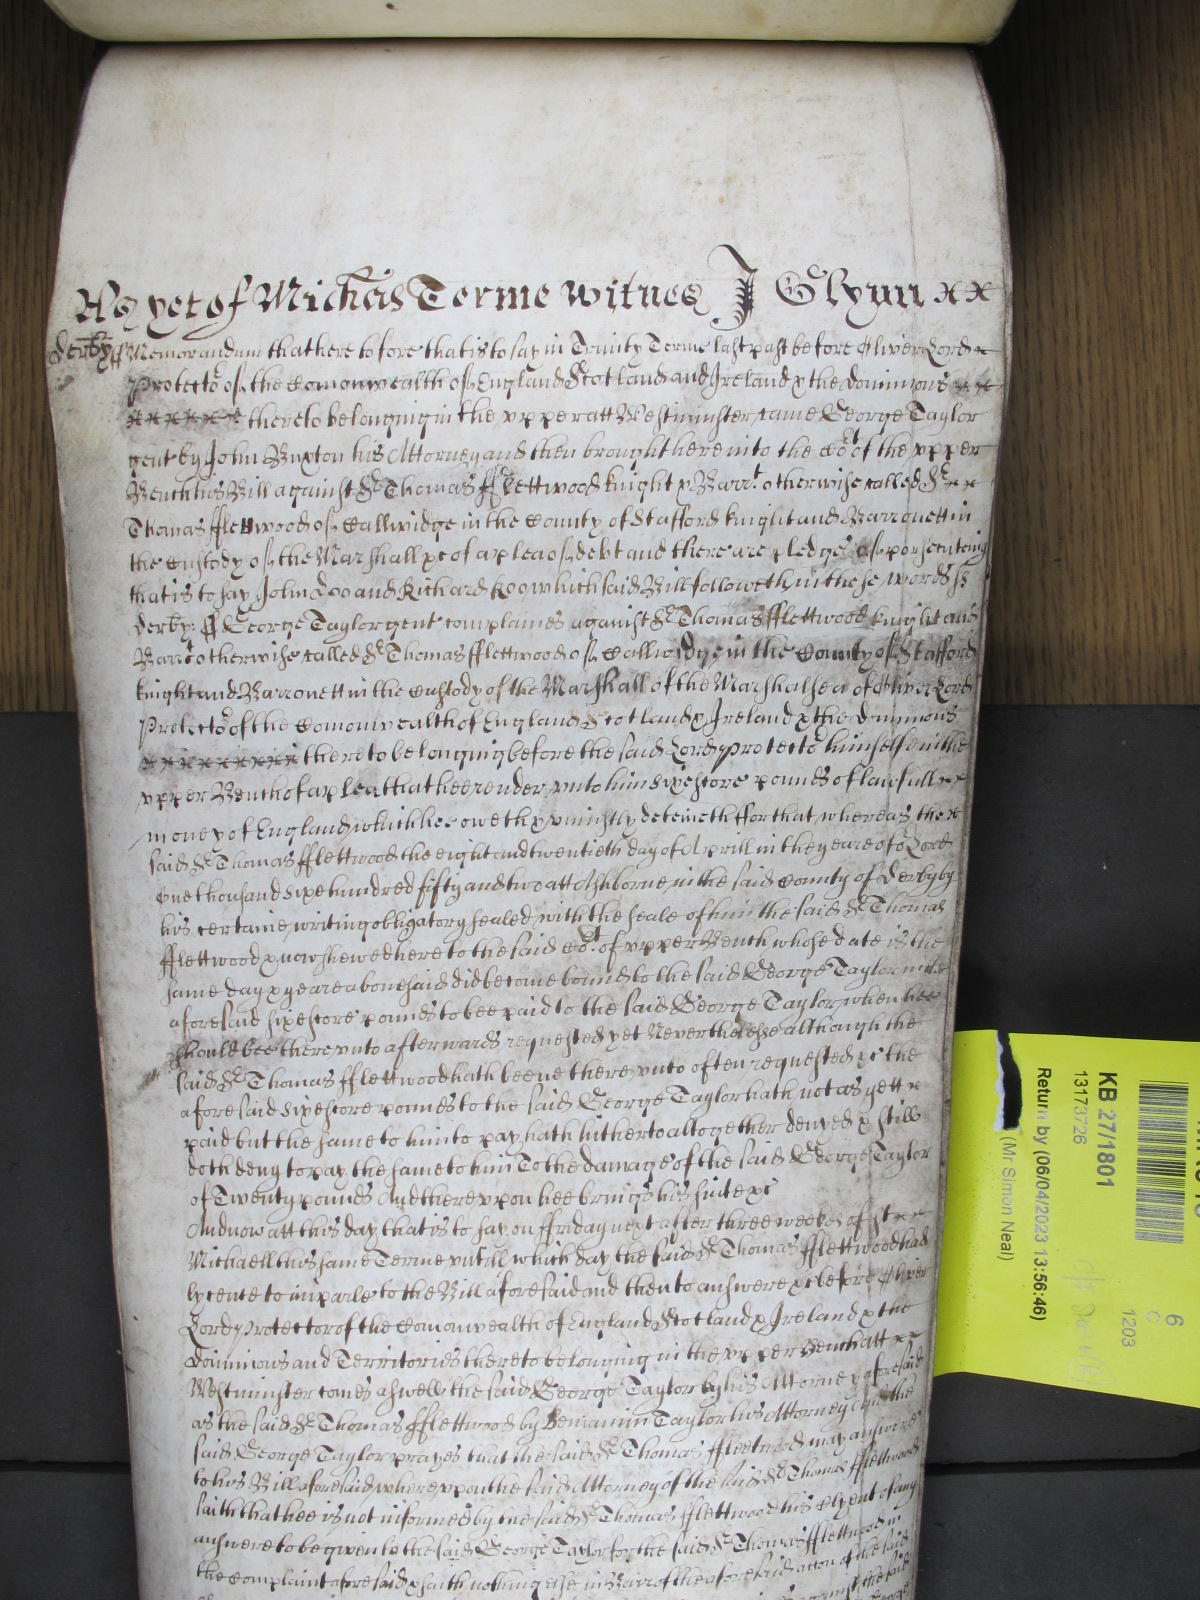 As yet of Michīs Terme witnes J Glynn xx
Derby ff Memorandum that heretofore that is to say in Trinity Terme last past before Oliver Lord x
Protector of the Comonwealth of England Scotland and Ireland & the dominions xx
xxxxxx thereto belonging in the upper att Westminster came George Taylor
gent by John Buxton his Attorney and then brought here into the Cort of the upper
Bench his Bill against Sr Thomas fflettwood knight & Barrt otherwise called Sr xx
Thomas fflettwood of Callwidge in the County of Stafford knight and Barronett in
the Custody of the Marshall &c of a plea of debt and there are pledges of prosecuteing
that is to say John Doo and Richard Roo which said Bill followeth in these words ss
Derby: ff George Taylor gent complaines against Sr Thomas fflettwood knight and
Barrt otherwise called Sr Thomas fflettwood of Callwidge in the County of Stafford
knight and Barronett in the Custody of the Marshall of the Marshalsea of Oliver Lord
Protector of the Comonwealth of England Scotland & Ireland & the dominions
xxxxxxxx thereto belonging before the said Lord Protector himselfe in the
upper Bench of a plea that hee render unto him sixe score pounds of lawfull xx
money of England which hee oweth & uniustly deteineth ffor that whereas the x
said Sr Thomas fflettwood the eight and twentieth day of Aprill in the yeare of or Lord
One thousand sixe hundred fifty and two att Ashborne in the said County of Derby by
his certaine writing obligatory sealed with the seale of him the said Sr Thomas
fflettwood & now shewed here to the said Cort of upper Bench whose date is the
same day & yeare abovesaid did become bound to the said George Taylor in the
aforesaid sixe score pounds to bee paid to the said George Taylor when hee
should bee thereunto afterwards requested yet Neverthelesse although the
said Sr Thomas fflettwood hath beene thereunto often requested &c the
aforesaid sixe score pounds to the said George Taylor hath not as yett x
paid but the same to him to pay hath hitherto altogether denyed & still
doth deny to pay the same to him To the damage of the said George Taylor
of Twenty pounds And thereupon hee brings his suite &c
And now att this day that is to say on ffriday next after three weekes of St xx
Michaell this same Terme untill which day the said Sr Thomas fflettwood had
lycence to imparle to the Bill aforesaid and then to answere &c before Oliver
Lord Protector of the Comonwealth of England Scotland & Ireland & the
dominions and Territories thereto belonging in the upper Bench att xx
Westminster comes aswell the said George Taylor by his Attorney aforesaid
as the said Sr Thomas fflettwood by Beniamin Taylor his Attorney And the
said George Taylor prayes that the said Sr Thomas fflettwood may answere
to his Bill aforesaid whereupon the said Attorney of the said Sr Thomas fflettwood
saith that hee is not informed by the said Sr Thomas fflettwood his Clyent of any
answere to be given to the said George Taylor for the said Sr Thomas fflettwood in
the Complaint aforesaid & saith nothing else in Barr of the aforesaid accon of the said
against the said
KB 27/1801
13173726
Return by (06/04/2023 13:56:46)
(Mr Simon Neal)
6
C
1203